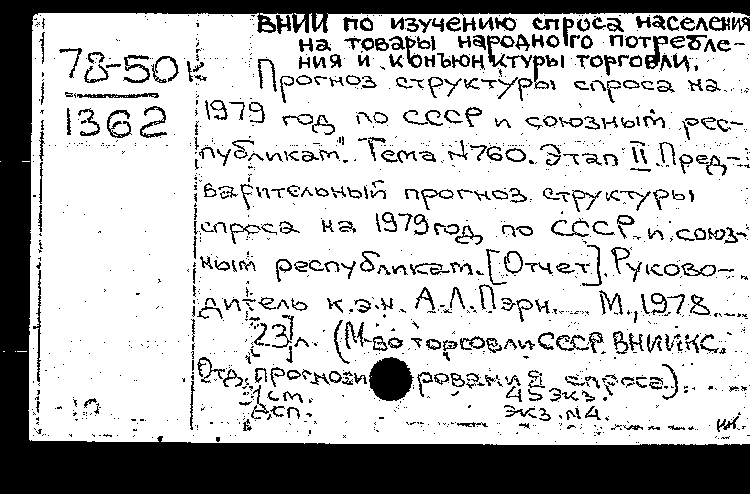 ВНИИ по изучению спроса населения
на товары народного потребле-
ния и конъюнктуры торговли.
78-50к
1362
Прогноз структуры спроса на
1979 год по СССР и союзным рес-
публикам". Тема №760. Этап II. Пред-
варительный прогноз структуры
спроса на 1979 год по СССР и союз-
ным республикам. [Отчет]. Руково-
дитель к.э.н. А.Л.Пэрн. М., 1978.
[23]л. (М-во торговли СССР. ВНИИКС.
Отд. прогнозирования спроса).
1 ст. 45 экз.
дсп. экз. №4.